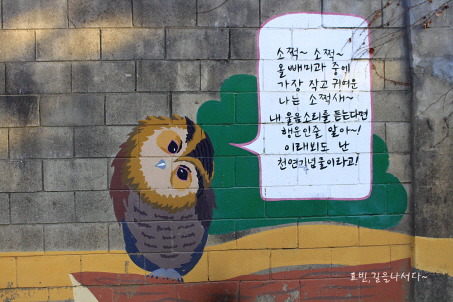 소쩍~ 소쩍~
올빼미과 중에
가장 작고 귀여운
나는 소쩍새~
내 울음소리를 듣는다면
행운인줄 알아~!
이래뵈도 난
천연기념물이라고!
효빈,길을나서다~